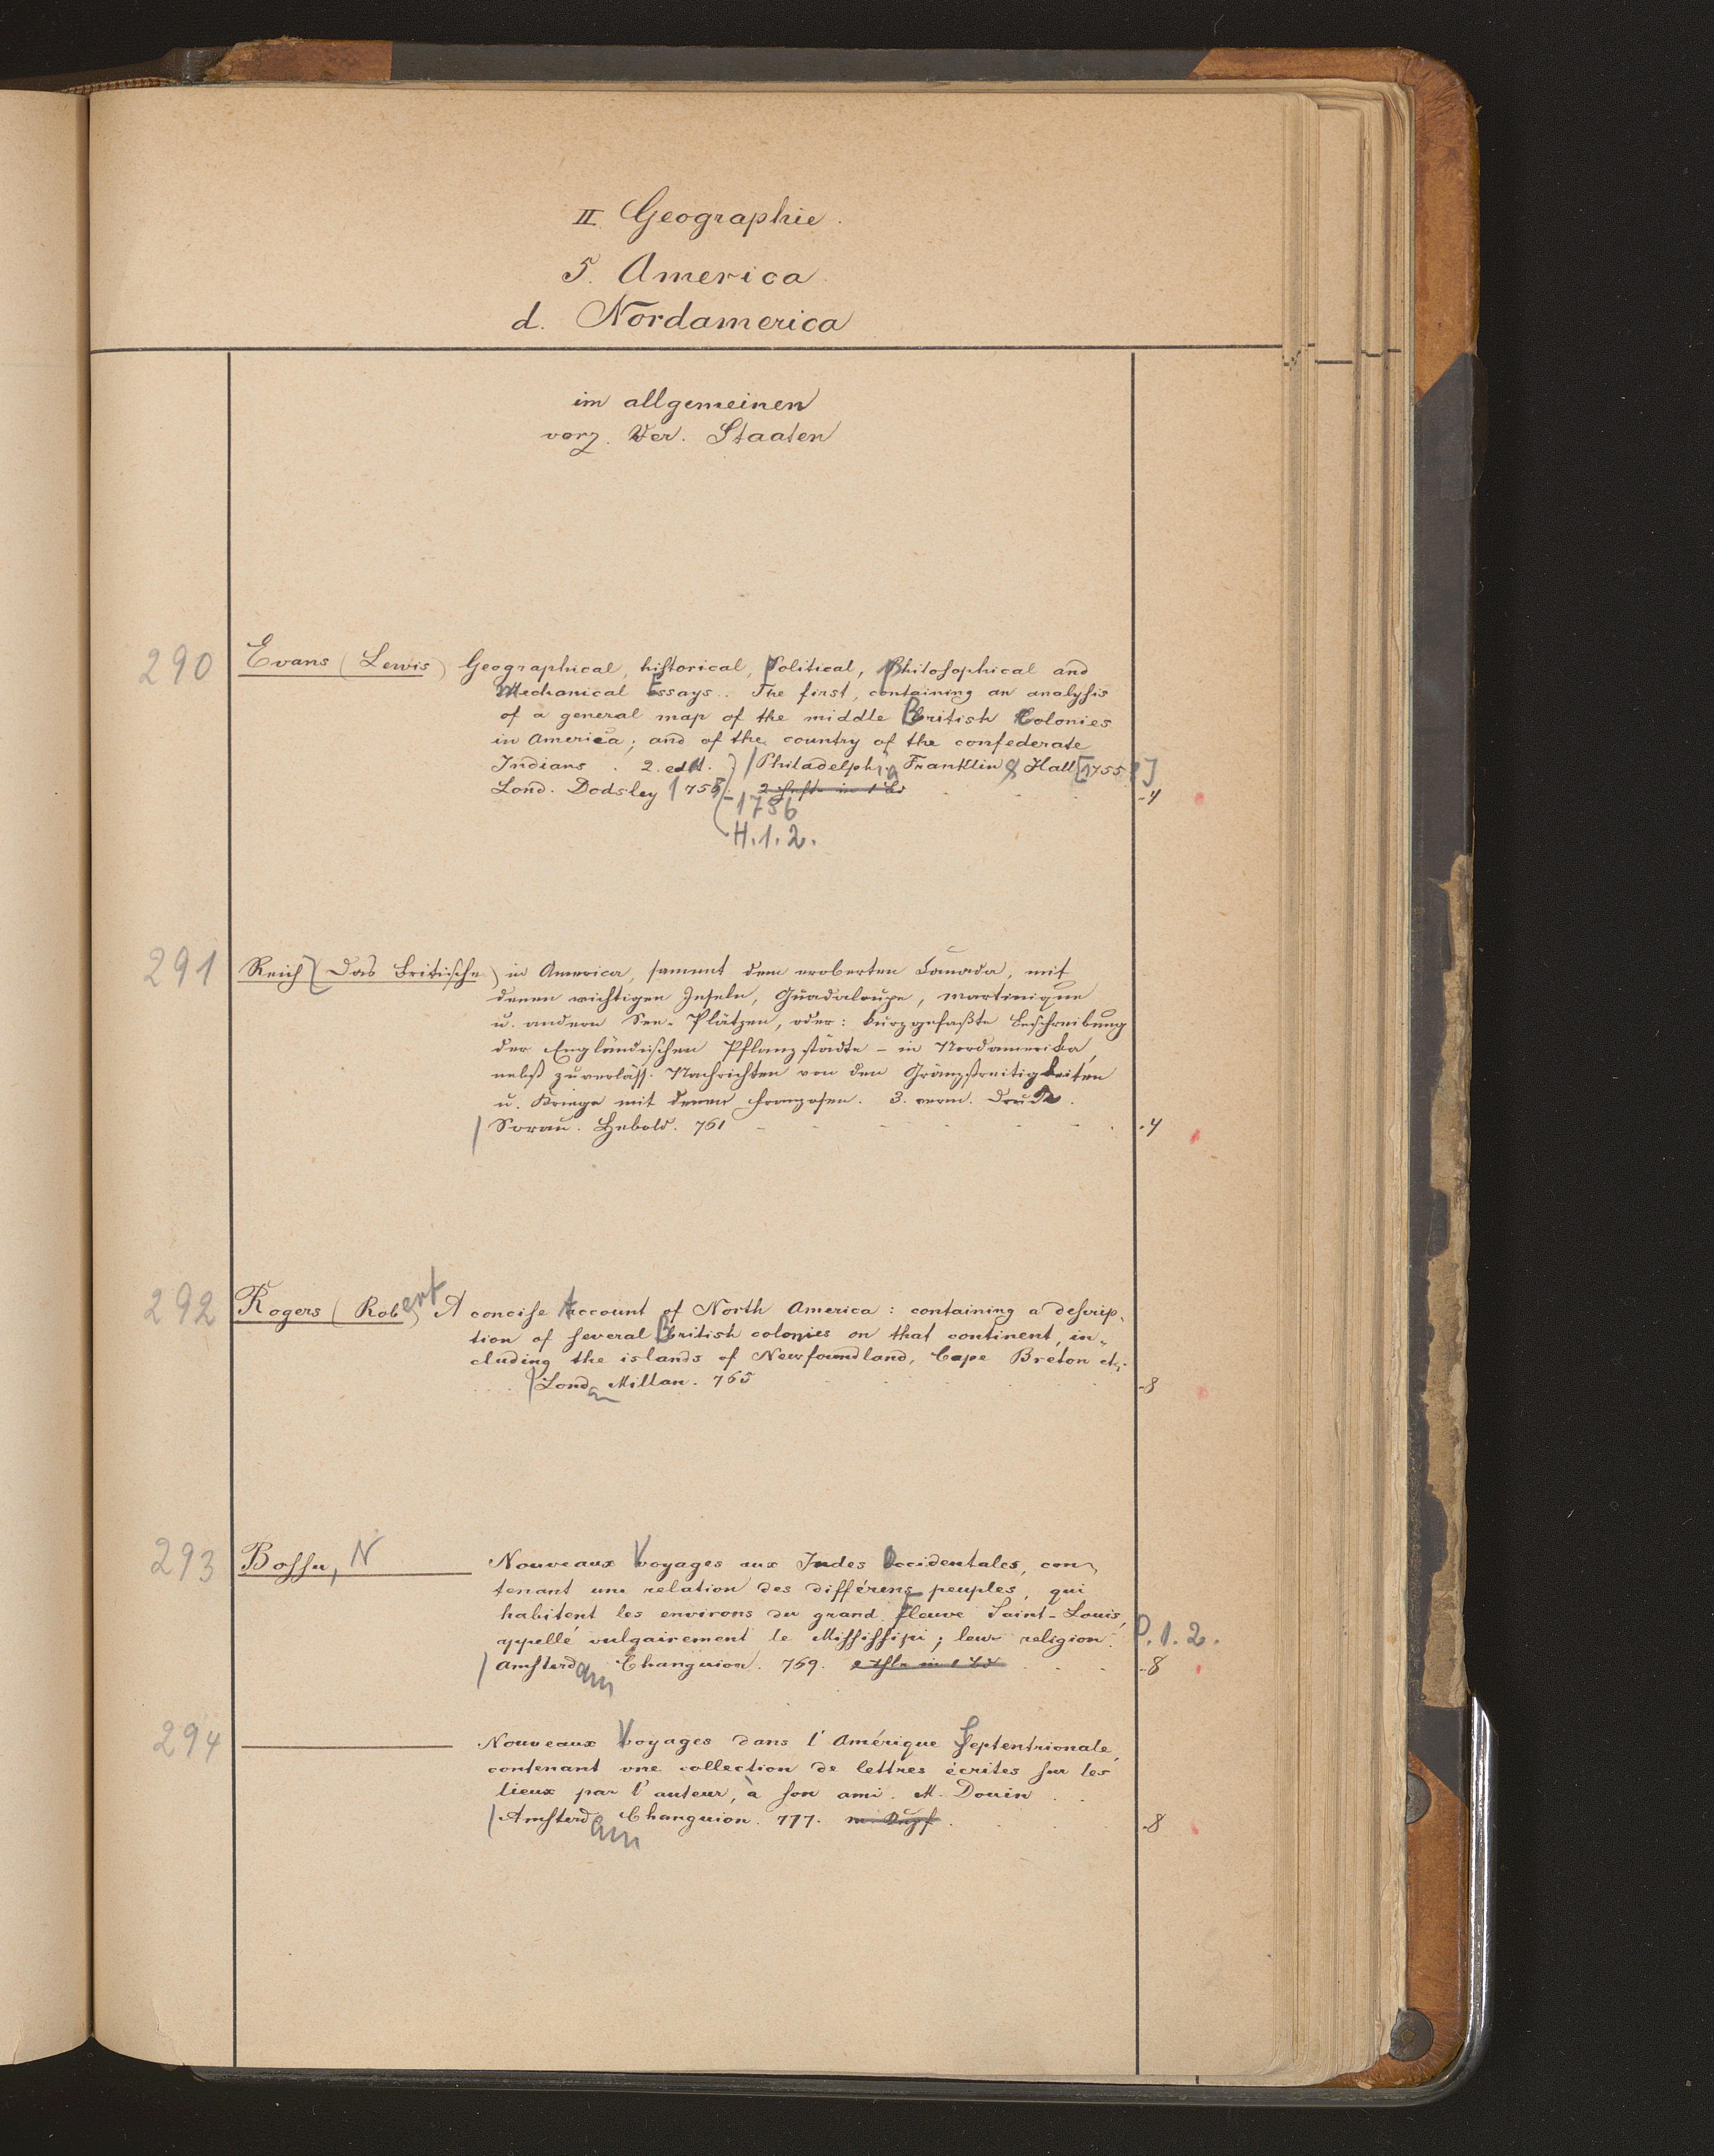 II. Geographie.
5. America.
d. Nordamerica
im allgemeinen
vorz. Ver. Staaten
290 Evans (Lewis) Geographical, hiſtorical, political, philoſophical and
mechanical Essays. The first, containing an analyſis
of a general map of the middle British Colonies
in America; and of the country of the confederate
Indians. 2. edit. Philadelphia Franklin & Hall [1755]
Lond. Dodsley 1755. 2 Hefte in 1 Bd - 4
- 1756
H. 1. 2.
291 Reich (Das Britische) in America, sammt dem eroberten Canada, mit
denen wichtigen Inseln, Guadaloupe, Martinique
u. andern See-Plätzen, oder: kurzgefaßte Beschreibung
der Engländischen Pflanzstädte - in Nordamerika,
nebst zuverläss. Nachrichten von den Gränzstreitigkeiten
u. Kriege mit denen Franzosen. 3. verm. Druck.
Sorau. Hebold. 761 - 4
292 Rogers (Robert) A conciſe Account of North America: containing a deſcrip-
tion of ſeveral British colonies on that continent, in-
cluding the islands of Newfoundland, Cape Breton etc.
Londn Millan. 765 - 8
293 Boſſu, N Nouveaux Voyages aux Indes Occidentales, con-
tenant une relation des différens peuples, qui
habitent les environs du grand Fleuve Saint-Louis,
appellé vulgairement le Miſſiſſipi; leur religion. P. 1. 2.
Amſterdam Changuion. 769. 2 Thle in 1 Bd - 8
294 Nouveaux Voyages dans l'Amérique Septentrionale,
contenant une collection de lettres écrites ſur les
lieux par l'auteur, à ſon ami. M. Douin.
Amſterdam Changuion. 777. m. Kupf. - 8